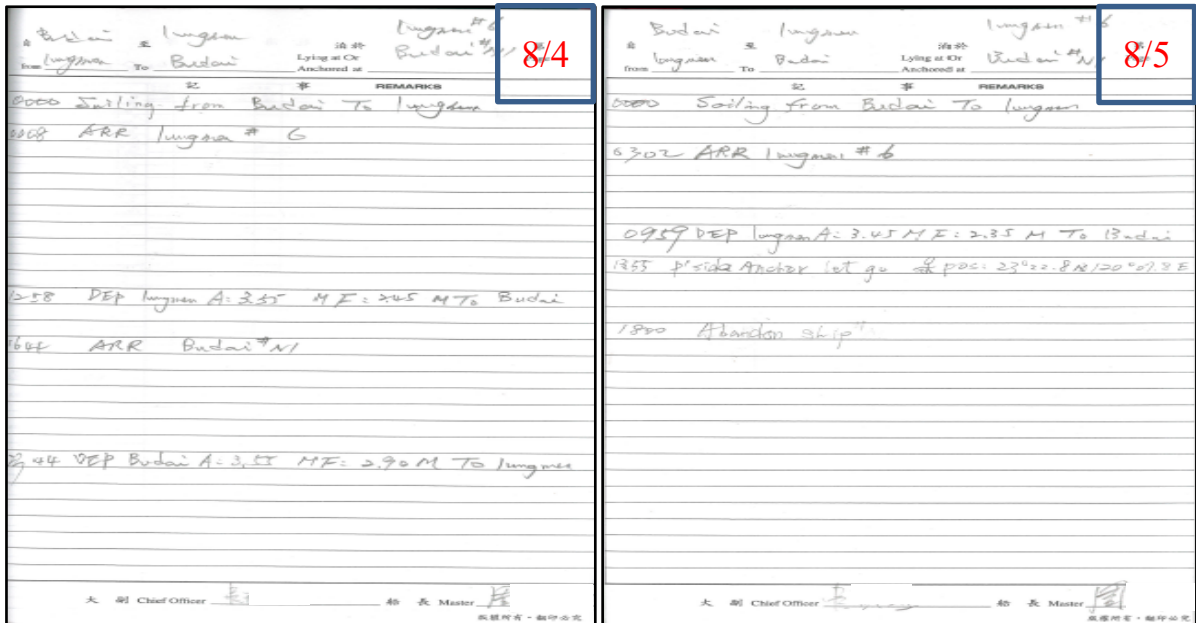 Budai 至 lungmen lungmen #6
自
from lungmen To Budai 泊於 Lying at Or Anchored at Budai #N1
8/4
記 事 REMARKS
0000 Sailing from Budai To lungmen
ARR lungmen # 6
1258 DEP lungmen A: 3.55 M F: 2.45 M To Budai
ARR Budai #N1
44 DEP Budai A: 3.55 M F: 2.90 M To lungmen
大 副 Chief Officer 船 長 Master
版權所有・翻印必究
Budai lungmen lungmen #6
自 至
from lungmen To Budai 泊於 Lying at Or Anchored at Budai #N1
8/5
記 事 REMARKS
0000 Sailing from Budai To lungmen
0302 ARR lungmen #6
0959 DEP lungmen A: 3.45 M F: 2.35 M To Budai
1355 P'side Anchor let go pos: 23°22.8 N/120°07.8 E
1800 Abandon ship
大 副 Chief Officer 船 長 Master
版權所有・翻印必究